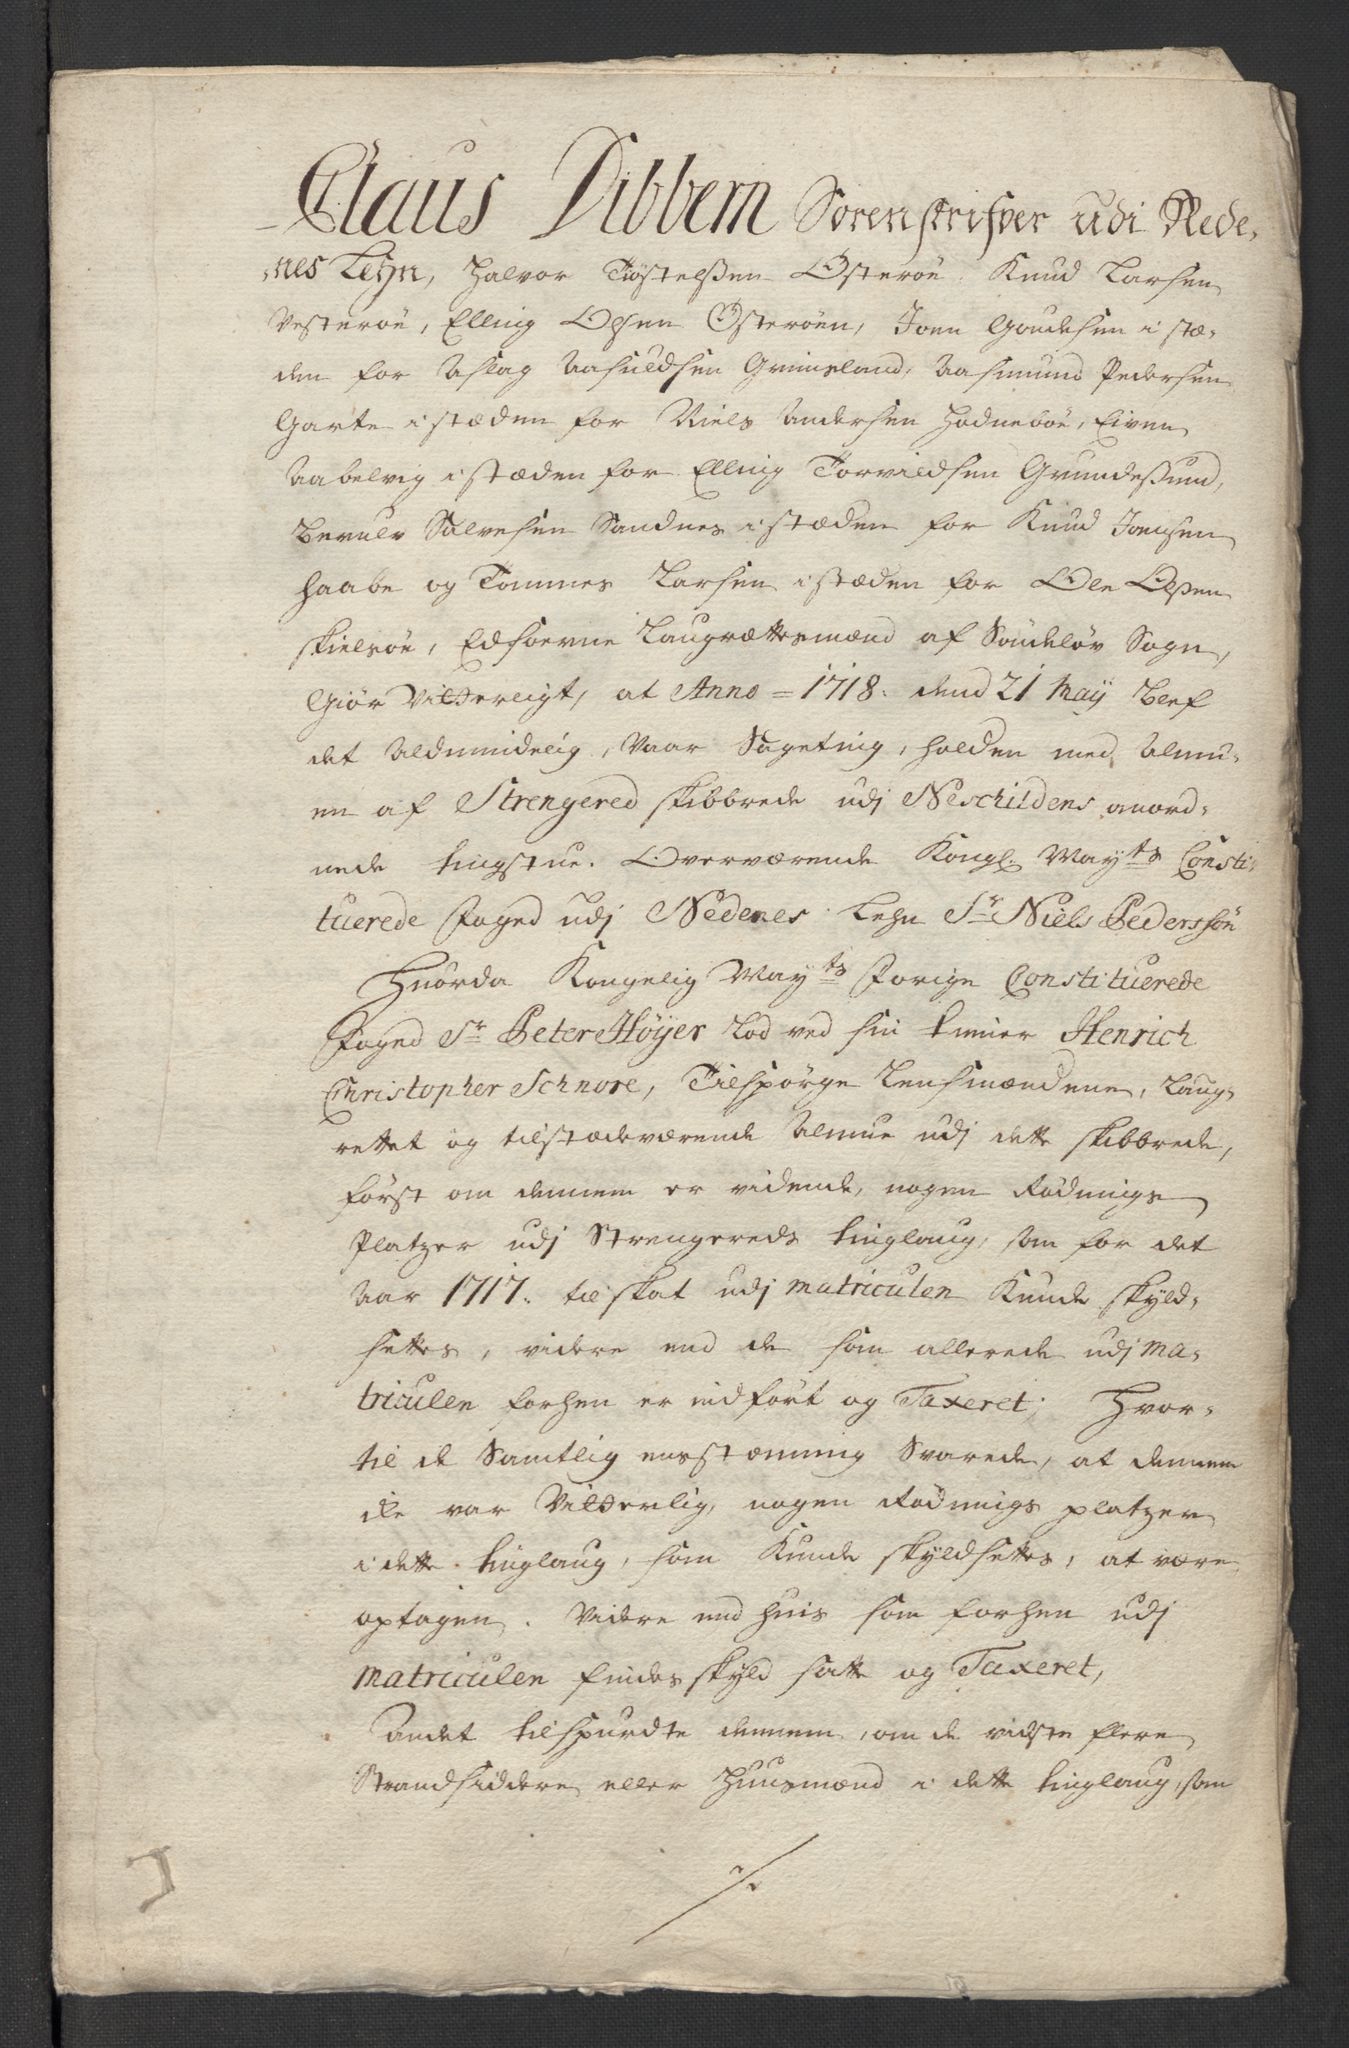 Claus Dibbern Sorenskrifver udi Nede-
nes Lehn, Halvor Tostelßen Osterøe, Knud Larsen
Vesterøe, Elling Olsen Osterøen, Joen Goudesen i stæ-
den for Aslag Aasuldsen Grimeland, Aasmund Pedersen
Garte i stæden for Niels Andersen Hødnebøe, Eiven
Aabelvig i stæden for Elling Torvildsen Grundeßund,
Berulv Salvesen Sandnes i stæden for Knud Joensen
Haabe og Tommes Larsen i stæden for Ole Olßen
Skielsøe, Edsoerne Laugrættesmænd af Søndeløv Sogn,
Giør Vitterligt, at Anno = 1718. dend 21 May blef
det Aldmindelig, Vaar Sageting, holden med Almu-
en af Strengered skibbrede udj Neschildens anord-
nede tingstue. Overværende Kongl. Mayts Consti-
tuerede Foged udj Nedenes Lehn Sr Niels Pederssøn
Huorda Kongelig Mayts Forige Constituerede
Foged Sr Peter Høyer Lod ved sin tiener Henrich
Christopher Schnore, Tilspørge Lensmændene, Laug-
rettet og tilstædeværende Almue udj dette skibbrede,
først om dennem er vidende, nogen Rødnings
Platzer udj Strengereds tinglaug, som for det
Aar 1717. til skat udj matriculen Kunde skyld-
settes, videre end de som allerede udj ma-
triculen forhen er indført og Taxeret; Hvor-
til de Samtlig eensstemmig Svarede, at dennem
icke var Vitterlig, nogen Rødnings platzer
i dette tinglaug, som Kunde skyldsettes, at være
optagen. Videre end huis som forhen udj
matriculen findes skyld satte og Taxeret,
Andet tilspurdte dennem, om de vidste flere
Strandsiddere eller Huusmænd i dette tinglaug, som